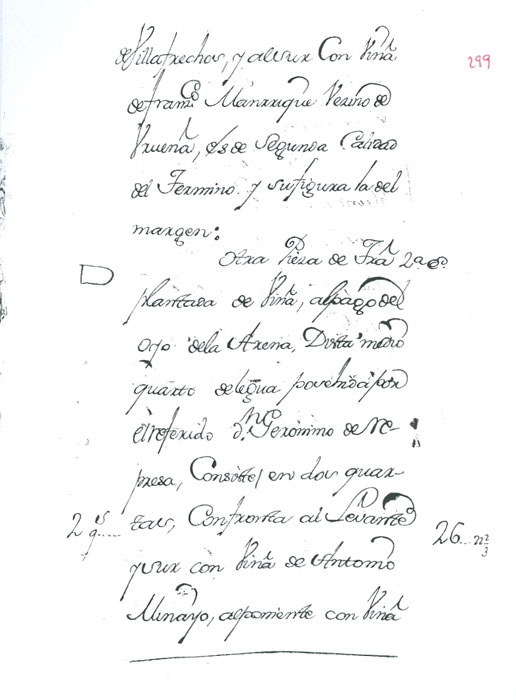 de Villafrechos, y al sur Con Viñã
299
de Franco Manrrique Vezino de
Vrueña, es de Segunda Calidad
del Termino y su figura la del
margen:
Otra Pieza de Tra 2a
plantada de Viñã, al pago del
Ojo dela Arena, Dista medio
quarto de legua posehida por
el referido Dn Geronimo de Re-
presa, Consiste en dos quar-
2 qs
tas, Confronta al Levante
26
y sur con Viñã de Antonio
Minayo, al poniente con Viñã